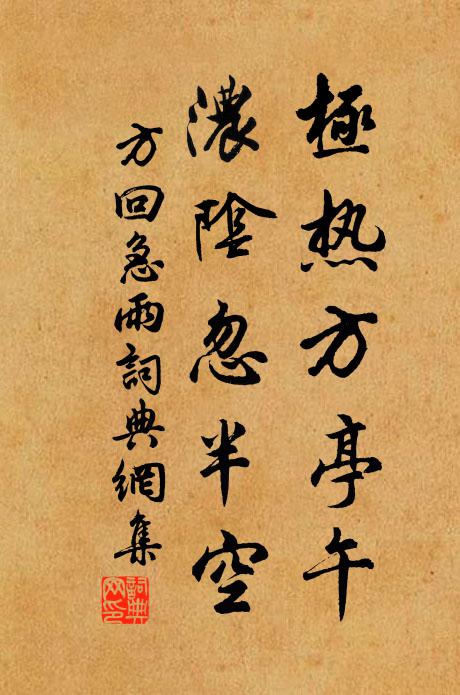 極热方亭午
濃陰忽半空
方回急雨詞典網集
詞典網印